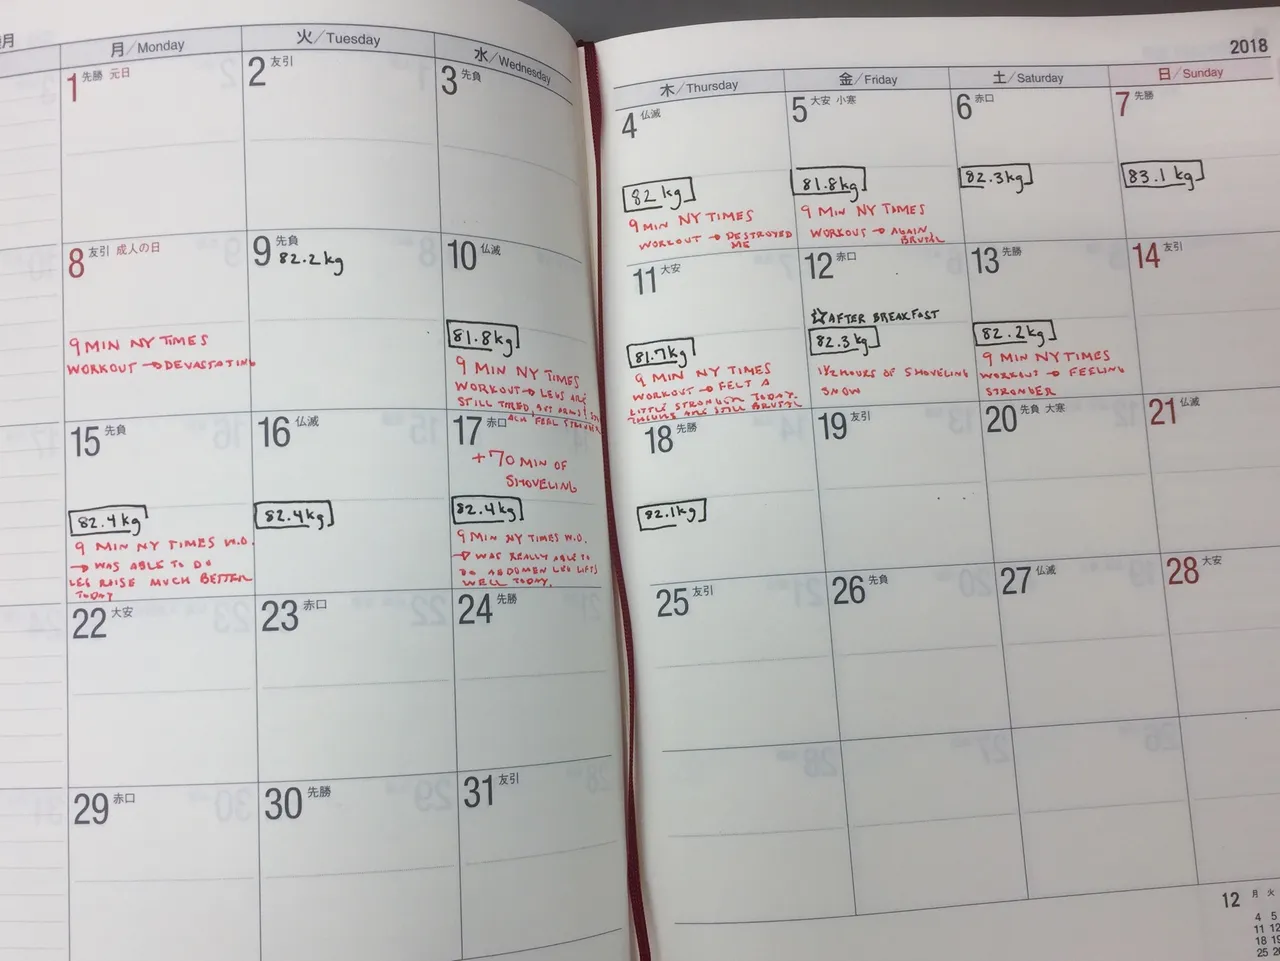 月
月/Monday
火/Tuesday
水/Wednesday
1 先勝 元日
2 友引
3 先負
8 友引 成人の日
9 MIN NY TIMES
WORKOUT → DEVASTATING
9 先負
82.2kg
10 仏滅
81.8kg
9 MIN NY TIMES
WORKOUT → LEGS ARE
STILL TIRED, BUT ARMS
FEEL STRONGER
15 先負
82.4kg
9 MIN NY TIMES W.O.
→ WAS ABLE TO DO
LEG RAISE MUCH BETTER
TODAY
16 仏滅
82.4kg
17 赤口
+70 MIN OF
SHOVELING
82.4kg
9 MIN NY TIMES W.O.
→ WAS REALLY ABLE TO
DO ABDOMEN LEG LIFTS
WELL TODAY.
22 大安
23 赤口
24 先勝
29 赤口
30 先勝
31 友引
2018
木/Thursday
金/Friday
土/Saturday
日/Sunday
4 仏滅
82 kg
9 MIN NY TIMES
WORKOUT → DESTROYED
ME
5 大安 小寒
81.8kg
9 MIN NY TIMES
WORKOUT → AGAIN
BRUTAL
6 赤口
82.3kg
7 先勝
83.1 kg
11 大安
81.7kg
9 MIN NY TIMES
WORKOUT → FELT A
LITTLE STRONGER TODAY.
THIGHS ARE STILL BRUTAL
12 赤口
☆AFTER BREAKFAST
82.3 kg
1 1/2 HOURS OF SHOVELING
SNOW
13 先勝
82.2kg
9 MIN NY TIMES
WORKOUT → FEELING
STRONGER
14 友引
18 先勝
82.1kg
19 友引
20 先負 大寒
21 仏滅
25 友引
26 先負
27 仏滅
28 大安
12
月 火
4 5
11 12
18 19
25